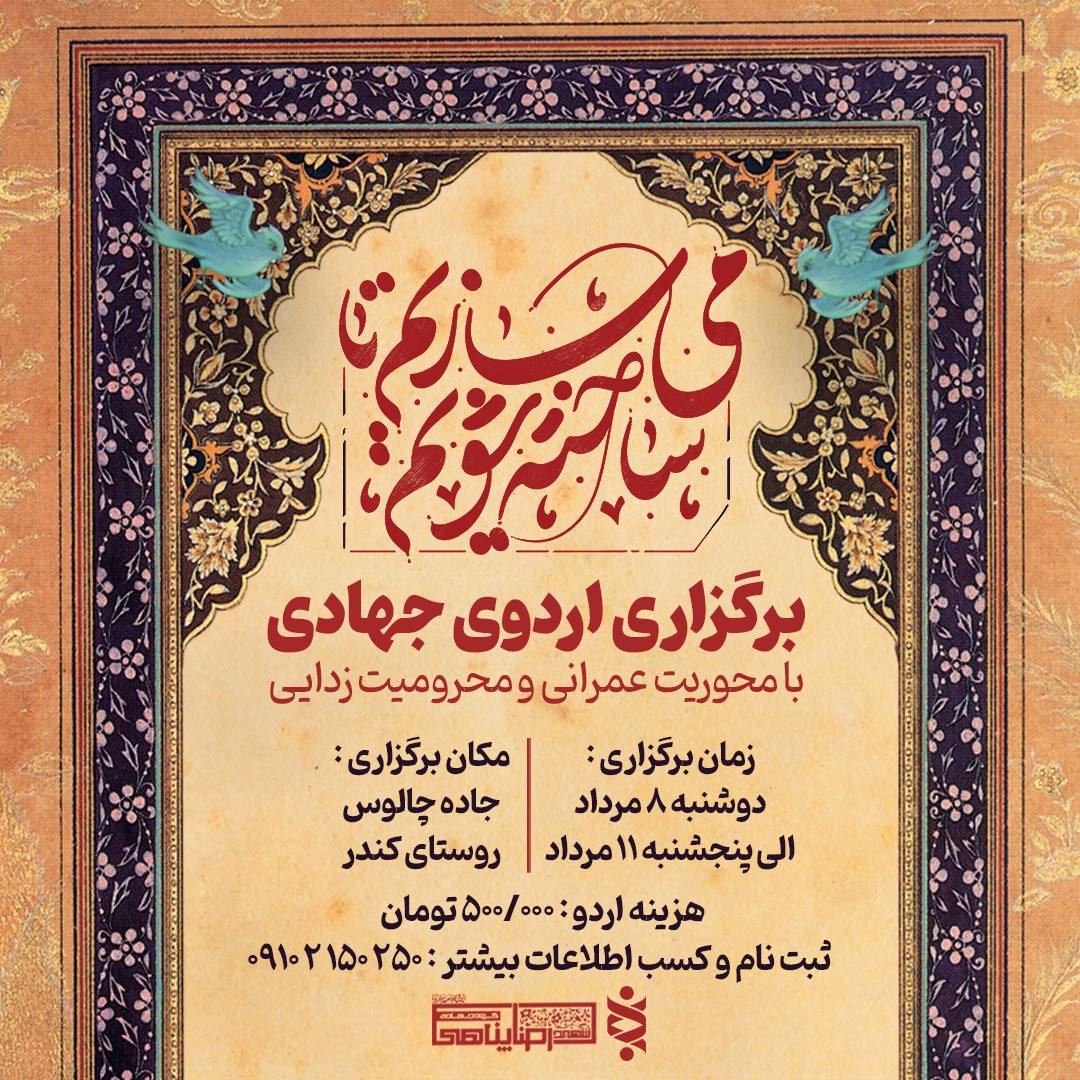 می سازیم تا
ساخته شویم
برگزاری اردوی جهادی
با محوریت عمرانی و محرومیت زدایی
زمان برگزاری :
دوشنبه ۸ مرداد
الی پنجشنبه ۱۱ مرداد
مکان برگزاری :
جاده چالوس
روستای کندر
هزینه اردو : ۵۰۰/۰۰۰ تومان
ثبت نام و کسب اطلاعات بیشتر : ۰۹۱۰۲۱۵۰۲۵۰
گروه جهادی
شهید رضا پناهی